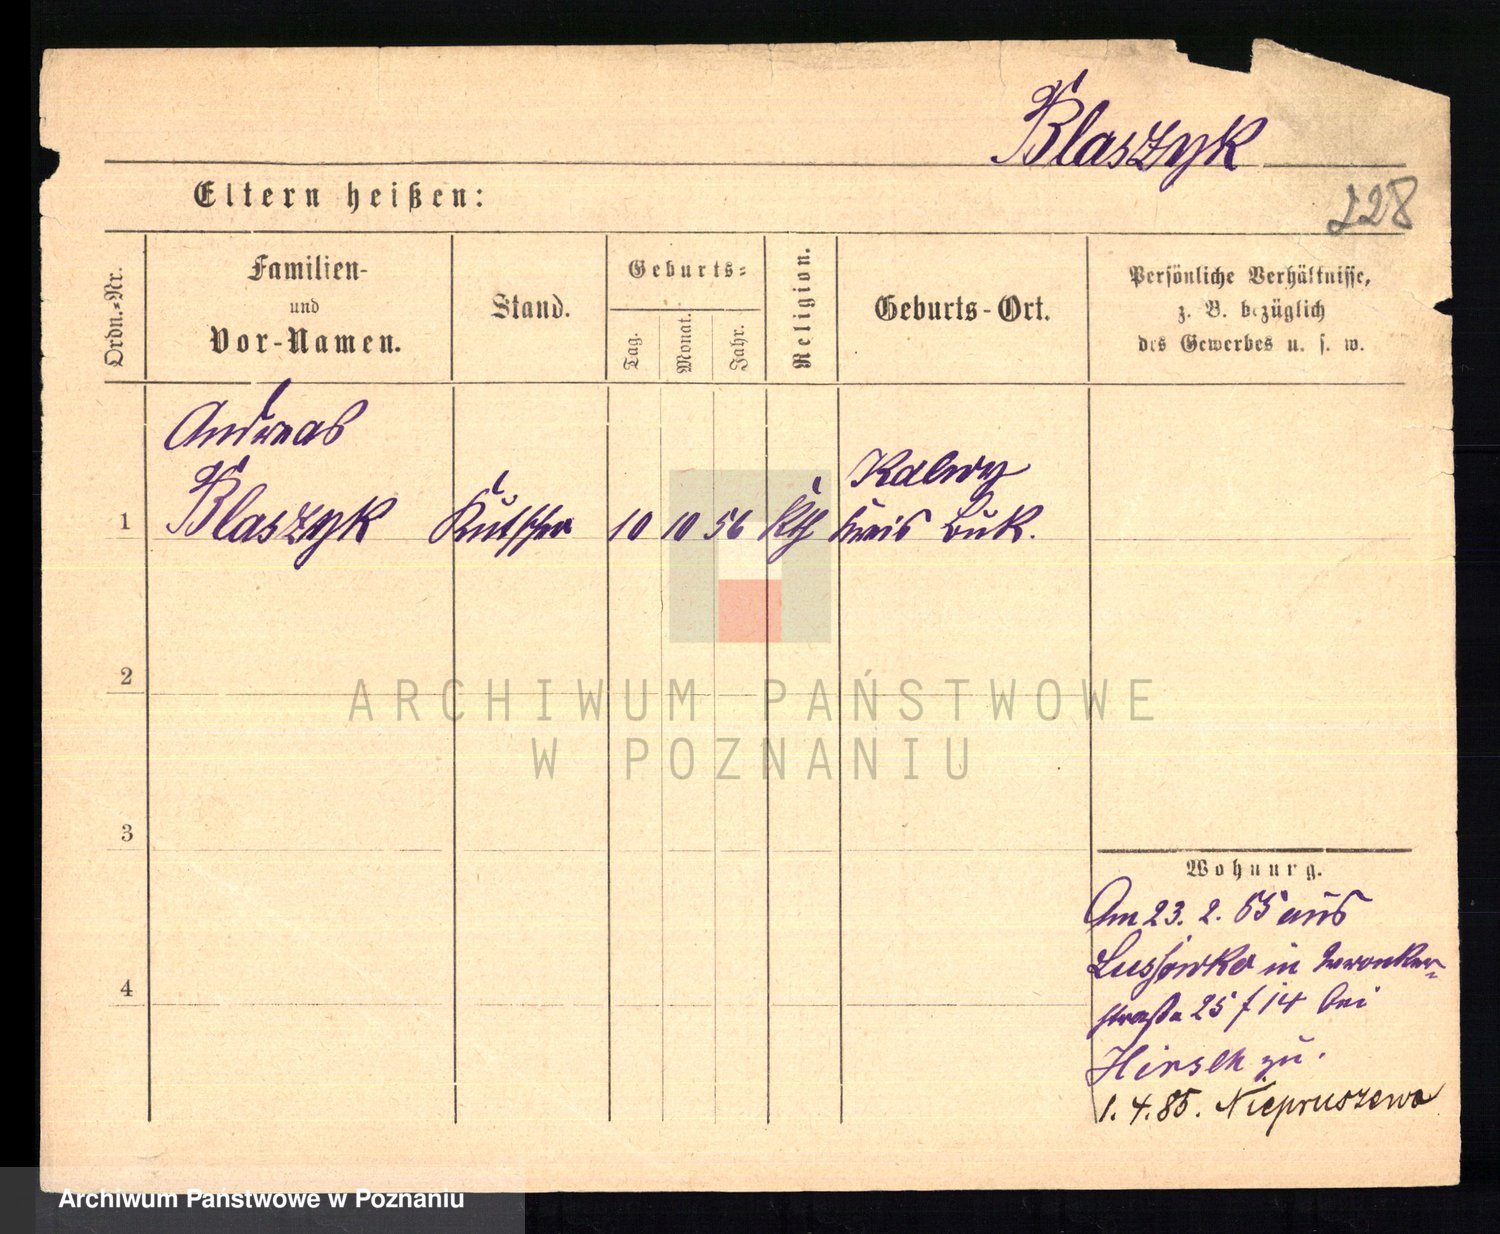 Blaszyk
Eltern heißen:
228
Ordn.-Nr.
Familien-
und
Vor-Namen.
Stand.
Geburts-
Tag.
Monat.
Jahr.
Religion.
Geburts-Ort.
Persönliche Verhältnisse,
z. B. bezüglich
des Gewerbes u. s. w.
Andreas
Kalwy
1 Blaszyk Kutscher 10 10 56 Kth Kreis Buk.
2
ARCHIWUM PAŃSTWOWE
W POZNANIU
3
Wohnung.
Am 23. 2. 85 aus
in Wronker-
straße 25 f 14 bei
Hirsch zu.
4
1. 4. 85. Niepruszewo
Archiwum Państwowe w Poznaniu